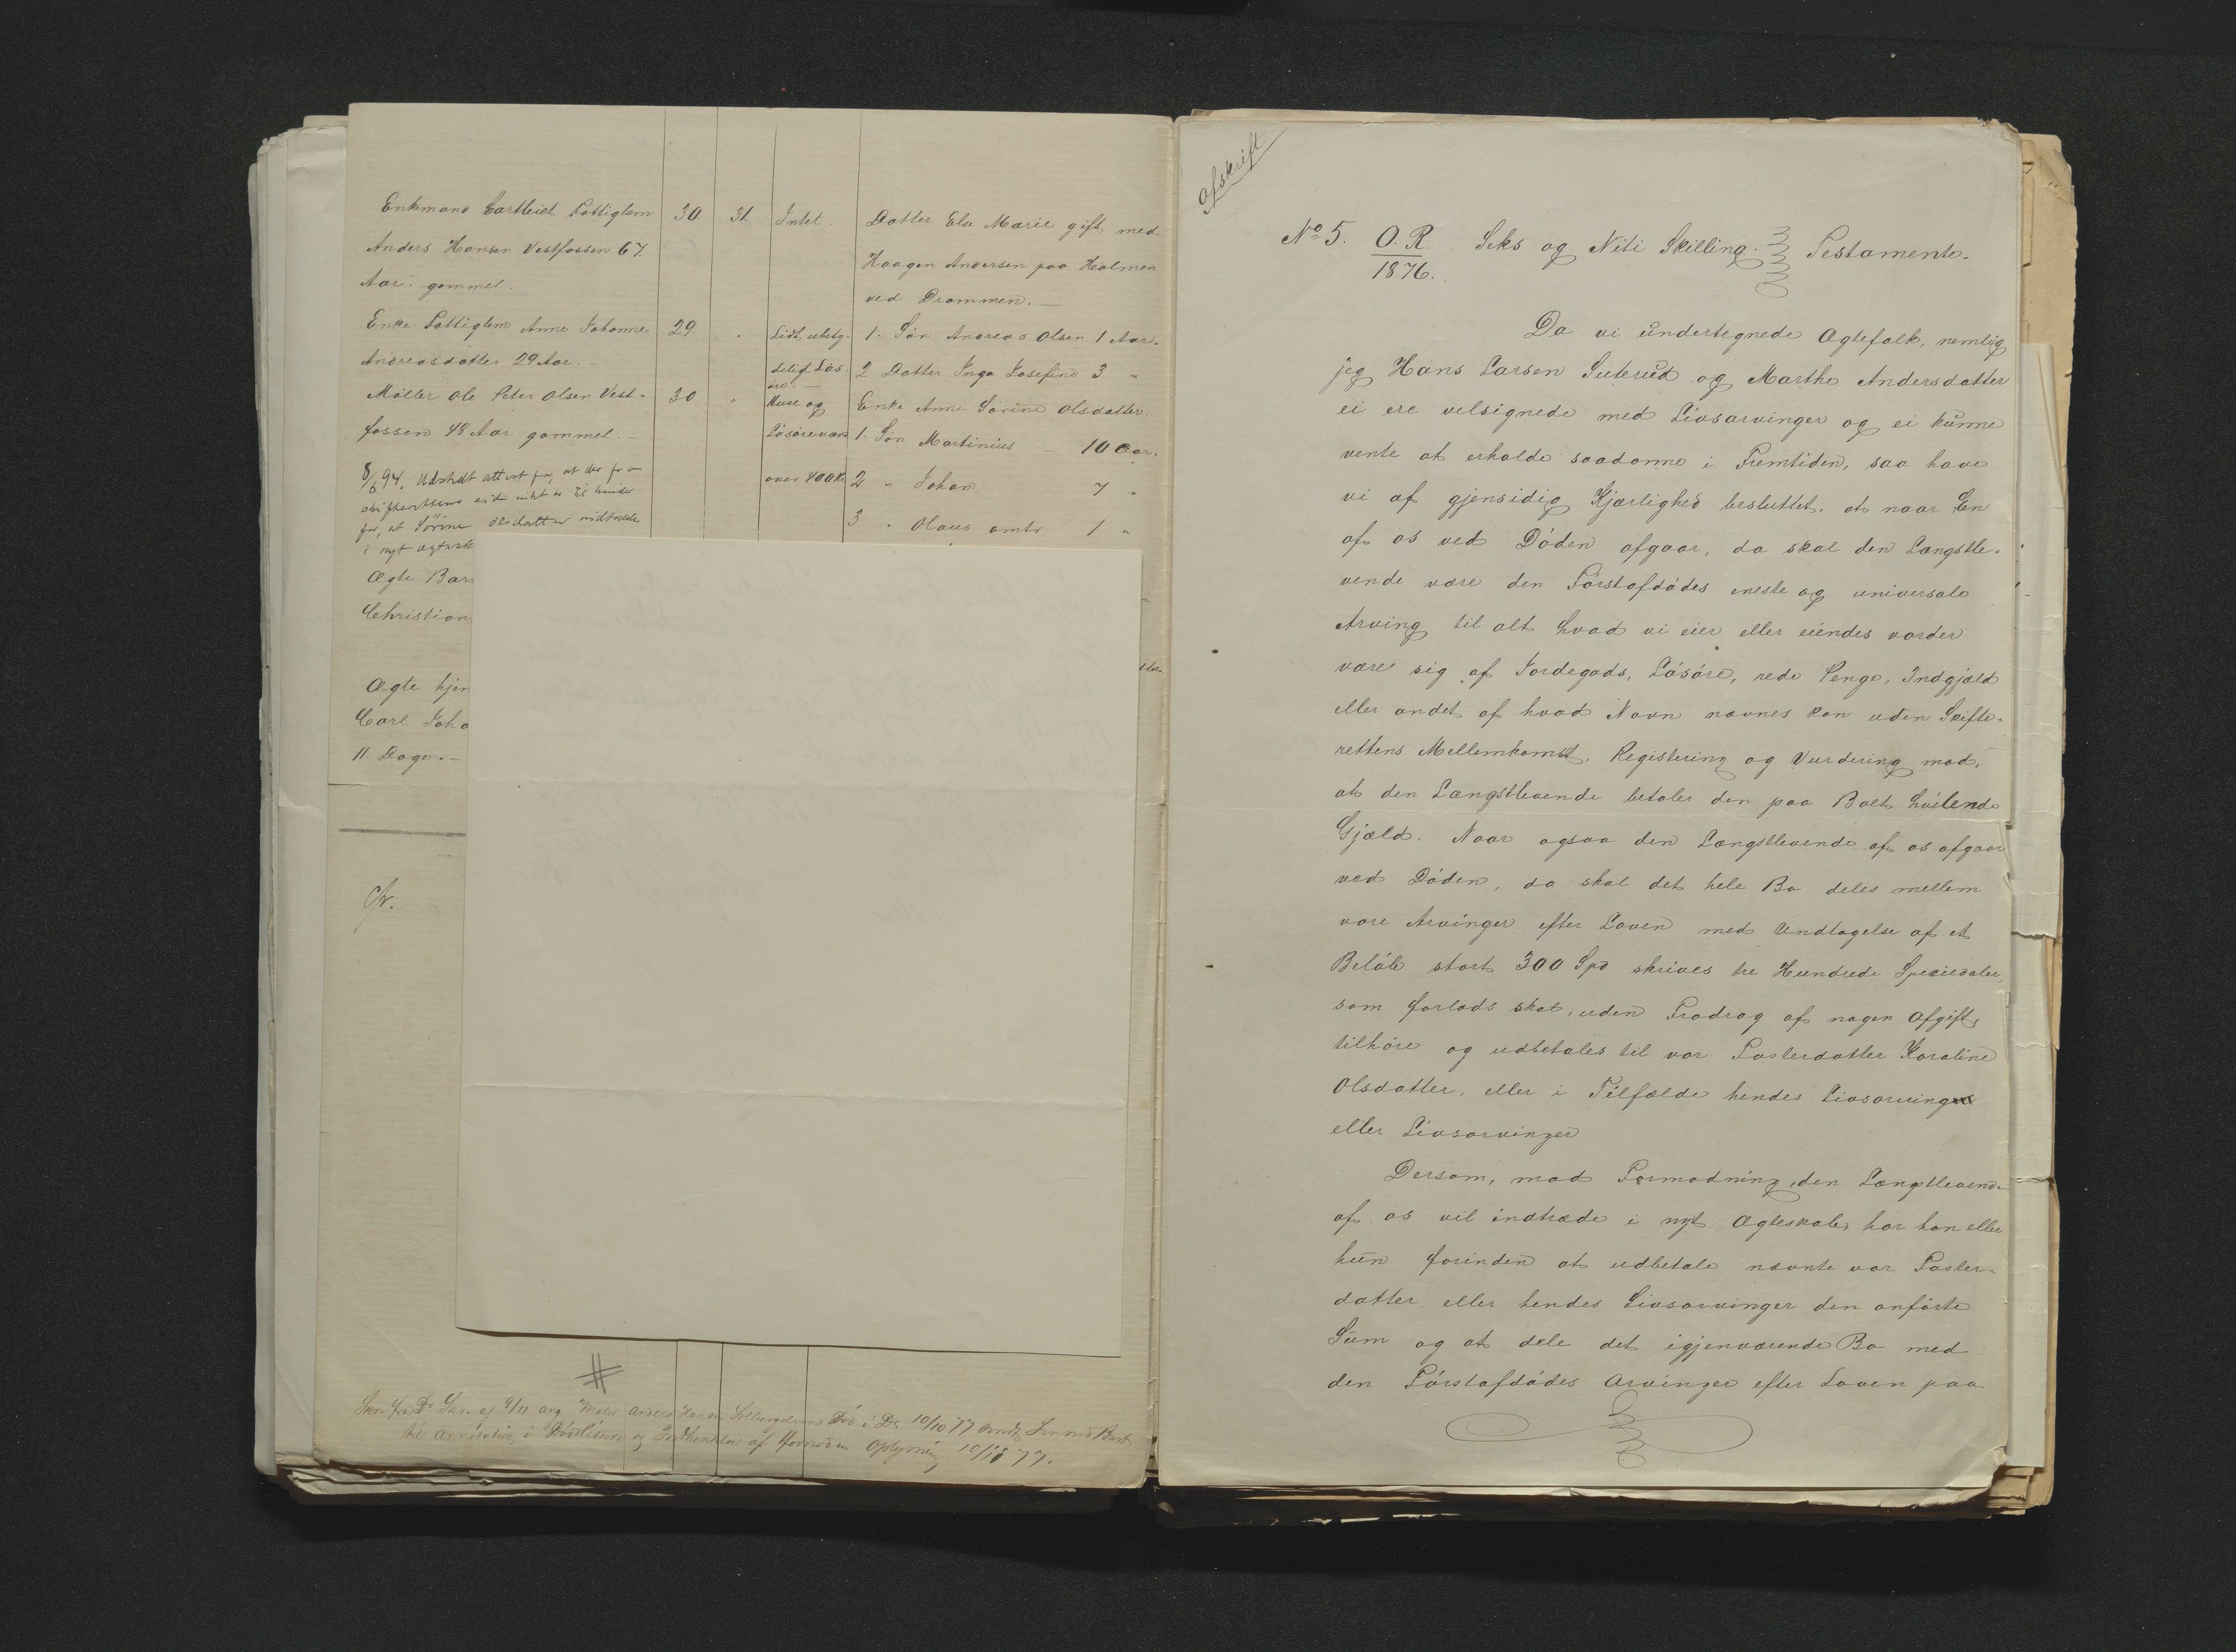 Enkemand Fattiglem 30. 31. Intet. Datter Else Marie gift med
Anders Hansen Vestfossen 67 Haagen Andersen paa Holmen
Aar gammel. ved Drammen. —
Enke Fattiglem Anne Johanne 29. " Lidt ubety- 1. Søn Andreas Olsen 1 Aar.
Andreasdatter 29 Aar. — delig Løs- 2 Datter Inga Josefine 3 "
øre. —
Møller Ole Peter Olsen Vest- 30 " Huse og Enke Anne Sørine Olsdatter.
fossen 48 Aar gammel. — Løsøre 1. Søn Martinius 10 Aar.
over 400 Kr 2 " Johan 7 "
3 " Olaus 1 "
8/6 94. Udstedt attest for, at der fra
skifterettens side intet er til hinder
for, at Sørine Olsdatter indtræder
i nyt ægtesk
Ægte Bar
Christian
Ægte hjem
Carl Joha
11 Dage. —
#
10/10 77
til Annotation i Dødslisten og af Oplysning 10/10 77.
Afskrift
No 5. O. R. Seks og Niti Skilling. Testamente.
1876.
Da vi undertegnede Ægtefolk, nemlig
jeg Hans Larsen Suterud og Marthe Andersdatter
ei ere velsignede med Livsarvinger og ei kunne
vente at erholde saadanne i Fremtiden, saa have
vi af gjensidig Kjærlighed besluttet, at naar En
af os ved Døden afgaar, da skal den Længstle-
vende være den Førstafdødes eneste og universale
Arving til alt hvad vi eier eller eiendes vorder
være sig af Jordegods, Løsøre, rede Penge, Indgjæld
eller andet af hvad Navn nævnes kan uden Skifte-
rettens Mellemkomst, Registering og Vurdering mod,
at den Længstlevende betaler den paa Boet hvilende
Gjæld. Naar ogsaa den Længstlevende af os afgaar
ved Døden, da skal det hele Bo deles mellem
vore Arvinger efter Loven med Undtagelse af et
Beløb stort 300 Spd skrives tre Hundrede Speciedaler,
som forlods skal, uden Fradrag af nogen Afgift,
tilhøre og udbetales til vor Fosterdatter Karoline
Olsdatter, eller i Tilfælde hendes Livsarving
eller Livsarvinger
Dersom, mod Formodning, den Længstlevende
af os vil indtræde i nyt Ægteskab, har han eller
hun forinden at udbetale nævnte vor Foster-
datter eller hendes Livsarvinger den anførte
Sum og at dele det igjenværende Bo med
den Førstafdødes Arvinger efter Loven paa